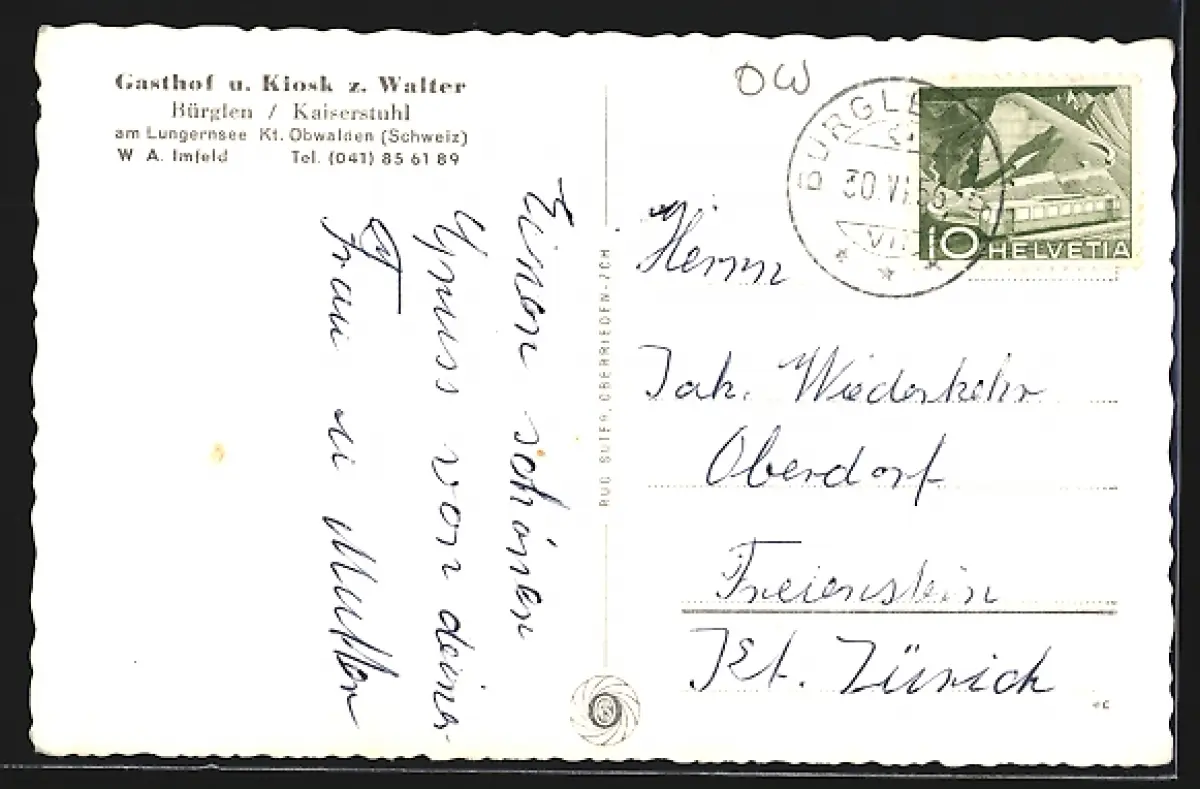 Gasthof u. Kiosk z. Walter
Bürglen / Kaiserstuhl
am Lungernsee Kt. Obwalden (Schweiz)
W A. Imfeld Tel. (041) 85 61 89
Einen schönen
Gruss von deiner
Frau u Mutter
RUD SUTER, OBERRIEDEN-ZCH
OW
BÜRGLEN
30.VI
10 HELVETIA
Herrn
Jak. Wiederkehr
Oberdorf
Freienstein
Kt. Zürich